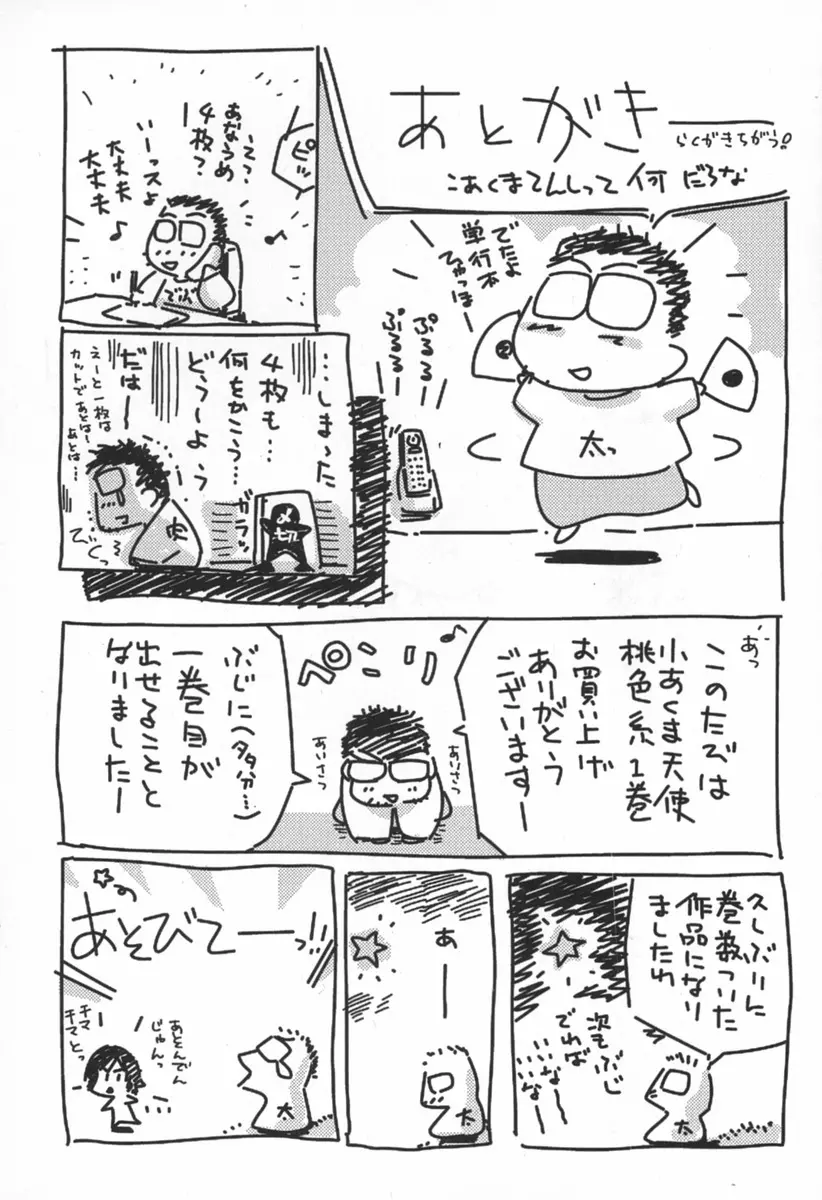 あとがき
らくがきちがう!
こあくまてんしって何だろな
でたよ
単行本
ひゃっほー
ぷるるるー
ぷるるるー
太っ
ピッ
えっ?
あなうめ
4枚?
いーっスよ
大丈夫♪
大丈夫
…しまった
4枚も…
何をかこう…
どうしよう
だはー
えーと一枚は
カットであとはー
あとは…
ガラッ
肉
びくっ
あっ
このたびは
小あくま天使
桃色系1巻
お買い上げ
ありがとう
ございますー
ぺこり♪
あいさつ
あいさつ
ぶじに(多分…)
一巻目が
出せることと
なりましたー
久しぶりに
巻数ついた
作品になり
ましたわ
次もぶじ
でれば
いいなー
太
あーー
太
あそびてーーっ!!
あとんでん
じゃんっ
チマ
チマとっ
太